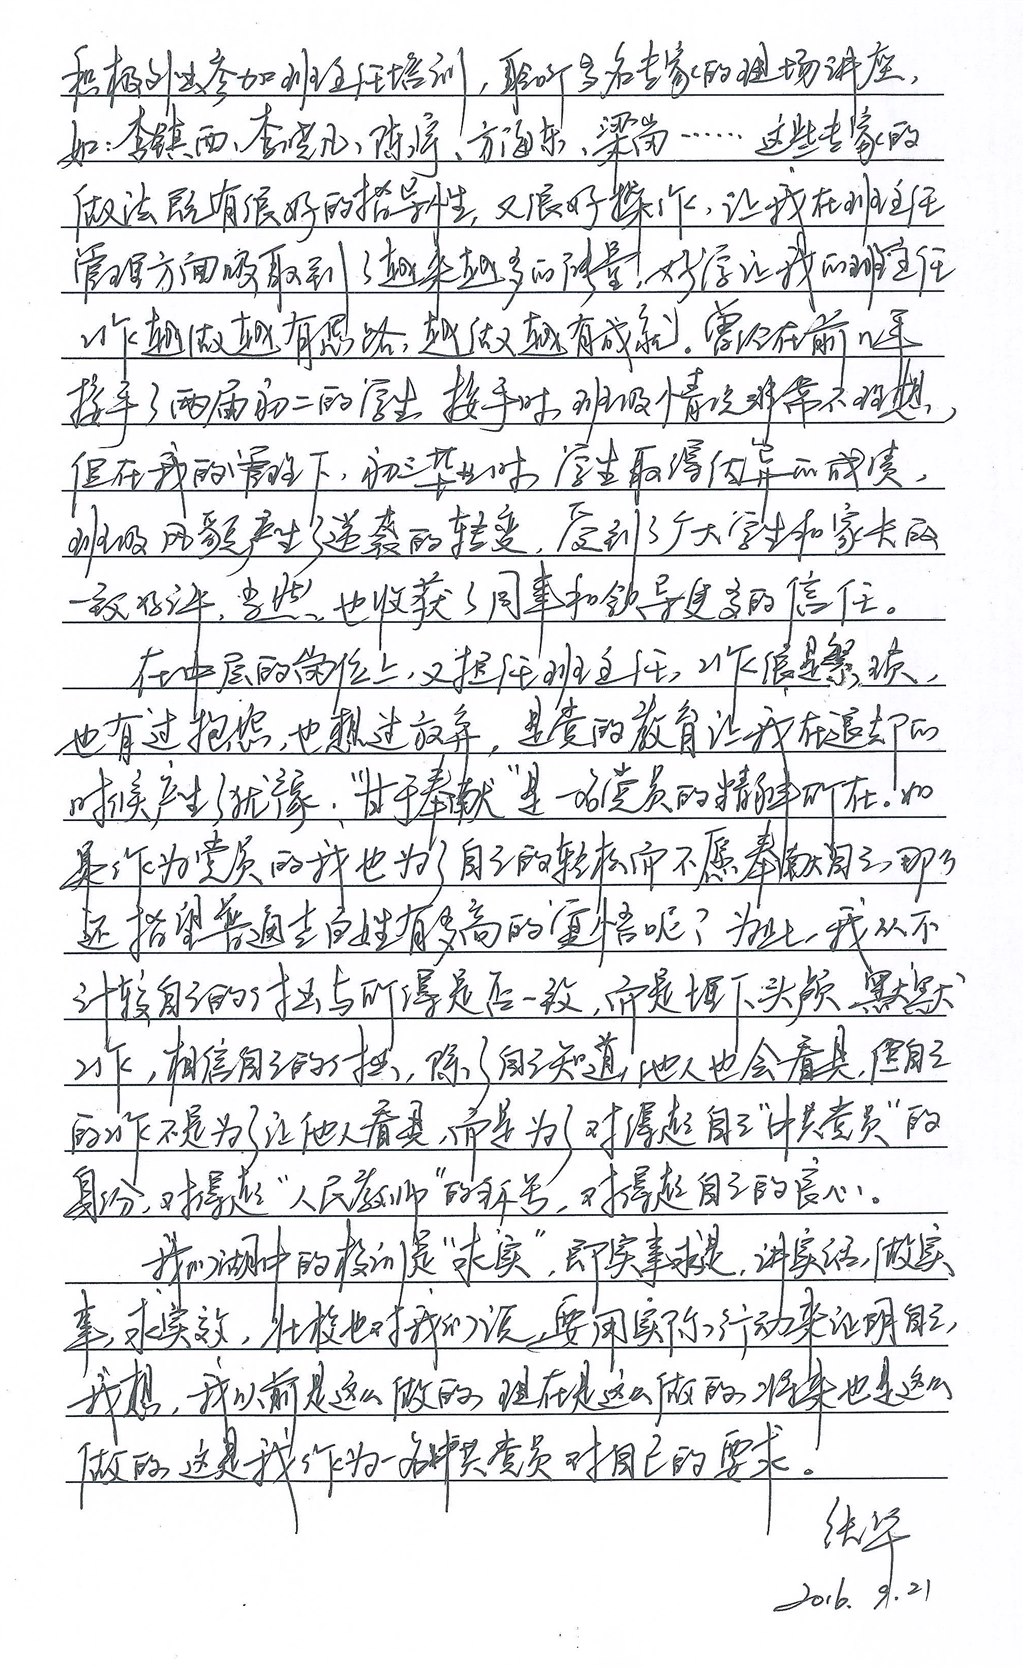 积极外出参加班主任培训，聆听多名专家的现场讲座，
如：李镇西、李晓凡、陈宇、方海东、梁岗……这些专家的
做法既有很好的指导性，又很好操作，让我在班主任
管理方面吸取到了越来越多的能量！好学让我的班主任
工作越做越有思路，越做越有成就。曾经在前几年
接手了两届初二的学生，接手时，班级情况非常不理想，
但在我的管理下，初三毕业时，学生取得优异的成绩，
班级风貌产生了逆袭的转变，受到了广大学生和家长的
一致好评，当然，也收获了同事和领导更多的信任。
在中层的岗位上，又担任班主任，工作很是繁琐，
也有过抱怨，也想过放弃，是党的教育让我在退却的
时候产生了犹豫，“甘于奉献”是一名党员的精神所在。如
果作为党员的我也为了自己的轻松而不愿奉献自己，那么
还指望普通老百姓有多高的觉悟呢？为此，我从不
计较自己的付出与所得是否一致，而是埋下头颅，默默
工作，相信自己的付出，除了自己知道，他人也会看见，但自己
的工作不是为了让他人看见，而是为了对得起自己“中共党员”的
身份，对得起“人民教师”的称号，对得起自己的良心。
我们湖中的校训是“求实”，即实事求是，讲实话，做实
事，求实效，杜校也对我们说，要用实际行动来证明自己，
我想，我以前是这么做的，现在是这么做的，将来也是这么
做的，这是我作为一名中共党员对自己的要求。
张华
2016.9.21